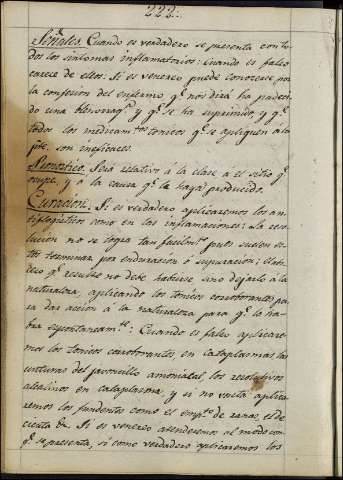 222.
Señales. Cuando es verdadero se presenta con to-
dos los sintomas inflamatorios: Cuando es falso
carece de ellos: Si es venereo puede conocerse por
la confesion del enfermo qᵉ nos dirá ha padeci-
do una blenorragᵃ y qᵉ se ha suprimido, y qᵉ
todos los medicamᵗᵒˢ tonicos qᵉ se apliquen á la
pᵗᵉ son ineficaces.
Pronostico. Será relativo á la clase a el sitio qᵉ
ocupe, y á la causa qᵉ la haya producido.
Curacion. Si es verdadero aplicaremos los an-
tiflogisticos como en las inflamaciones: La reso-
lucion no se logra tan facilmᵗᵉ pues suelen es-
tos terminar por enduracion ó supuracion; el
qᵉ resulte no debe abrirse sino dejarlo á la
naturaleza, aplicando los tonicos corroborantes pa-
ra dar accion á la naturaleza para qᵉ lo ha-
bra espontaneamᵗᵉ: Cuando es falso aplicare-
mos los tonicos corroborantes en cataplasmas las
unturas del amoniacal, los resolutivos
alcalinos en cataplasma, y si no vasta aplica-
remos los fundentes como el empᵗᵒ de ranas, el de
cicuta &ᵃ. Si es venereo atenderemos al modo con
qᵉ se presenta, si como verdadero aplicaremos los